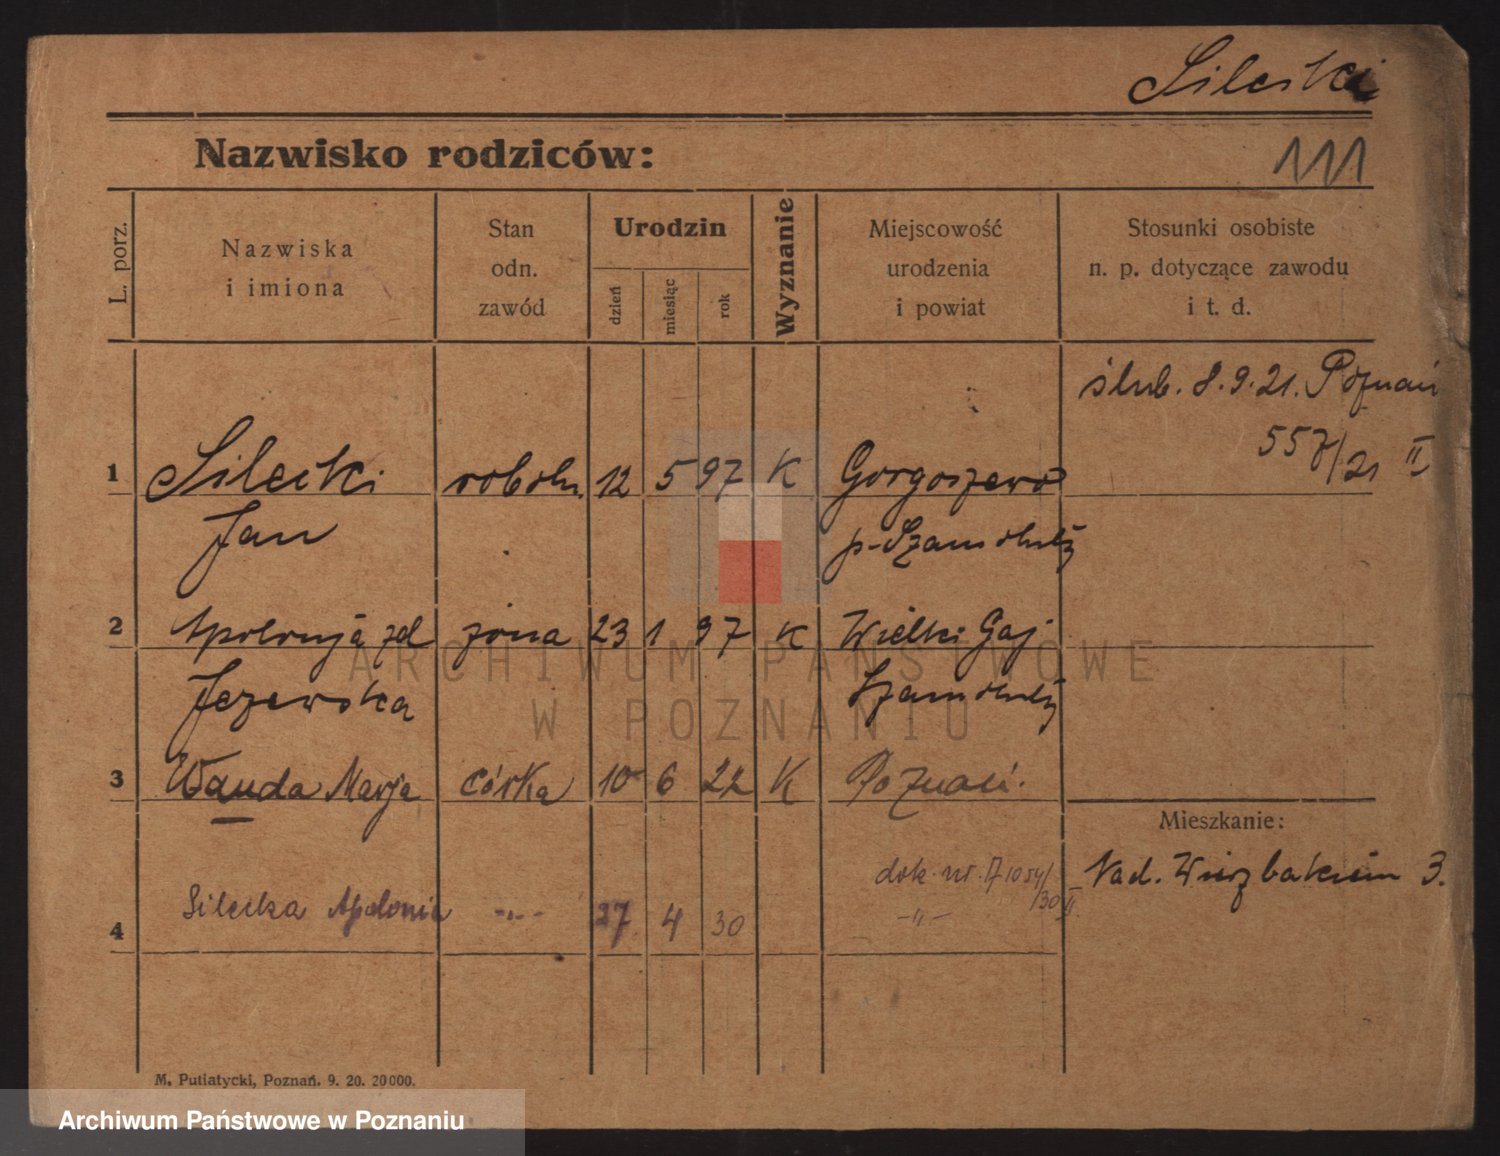 Silecki
Nazwisko rodziców:
111
L. porz.
Nazwiska
i imiona
Stan
odn.
zawód
Urodzin
dzień
miesiąc
rok
Wyznanie
Miejscowość
urodzenia
i powiat
Stosunki osobiste
n. p. dotyczące zawodu
i t. d.
ślub. 8.9.21. Poznań
557/21 II
1 Silecki robotn. 12 5 97 K Gorgoszewo
Jan p-Szamotuły
2 Apolonja zd żona 23 1 97 K Wielki Gaj
Jezewska Szamotuły
3 Wanda Marja córka 10 6 22 K Poznań.
Mieszkanie:
Nad. Wierzbakiem 3.
dok. nr. 
4 Silecka Apolonia -"- 27 4 30 -"-
M. Putiatycki, Poznań. 9. 20. 20000.
ARCHIWUM PAŃSTWOWE
W POZNANIU
Archiwum Państwowe w Poznaniu